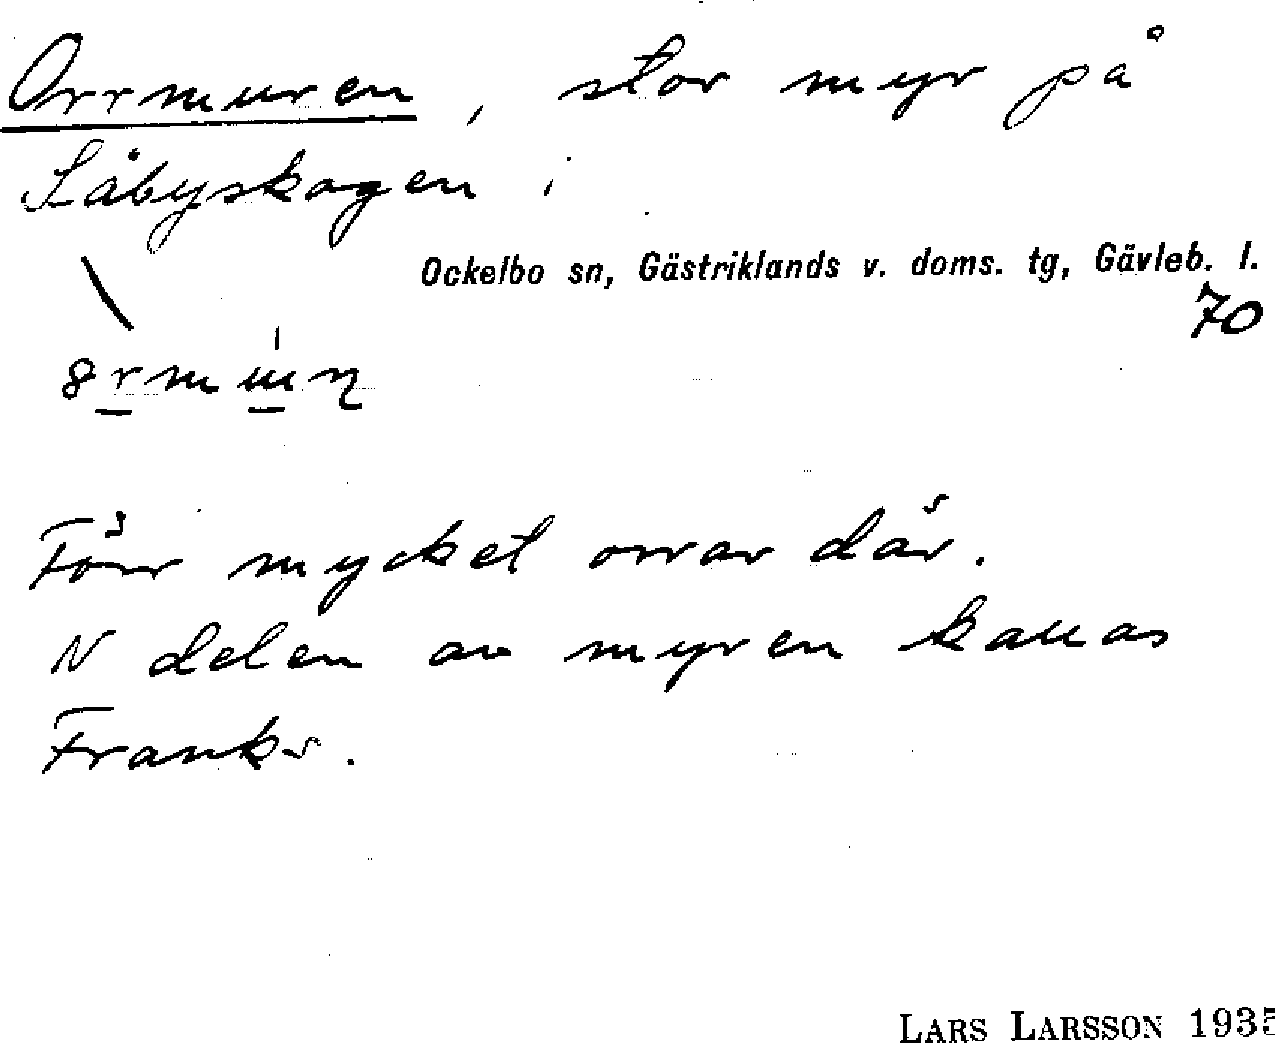 Orrmuren, stor myr på
Såbyskogen i
Ockelbo sn, Gästriklands v. doms. tg, Gävleb. l.
70
Förr mycket orrar där.
N delen av myren kallas
Franks.
LARS LARSSON 1935